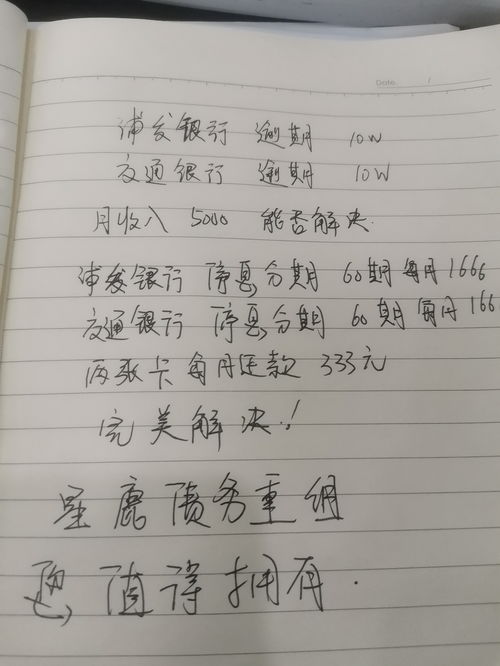 Date.
浦发银行 逾期 10W
交通银行 逾期 10W
月收入 5000 能否解决.
浦发银行 停息分期 60期 每月1666
交通银行 停息分期 60期 每月166
两张卡 每月还款 333元
完美解决!
星鹿债务重组
值得拥有.